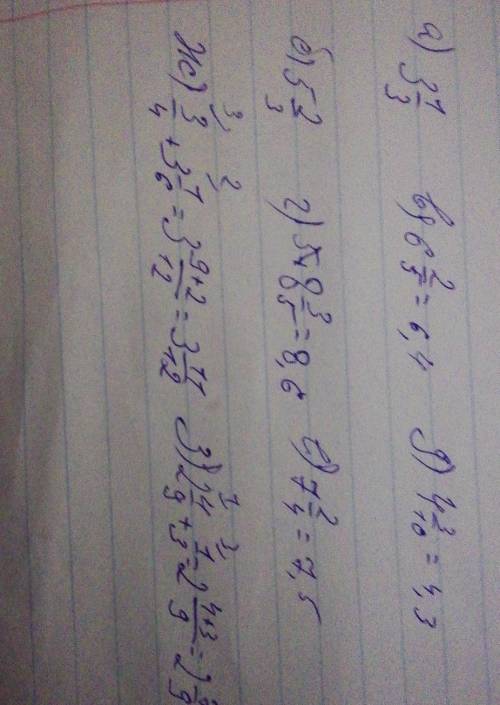 а) 3 1/3 в) 6 2/5 = 6,4 д) 4 3/10 = 4,3
б) 5 2/3 г) 8 3/5 = 8,6 е) 7 2/4 = 7,5
ж) 3/4 + 3 1/6 = 3 9+2/12 = 3 11/12 з) 2 4/9 + 1/3 = 2 4+3/9 = 2